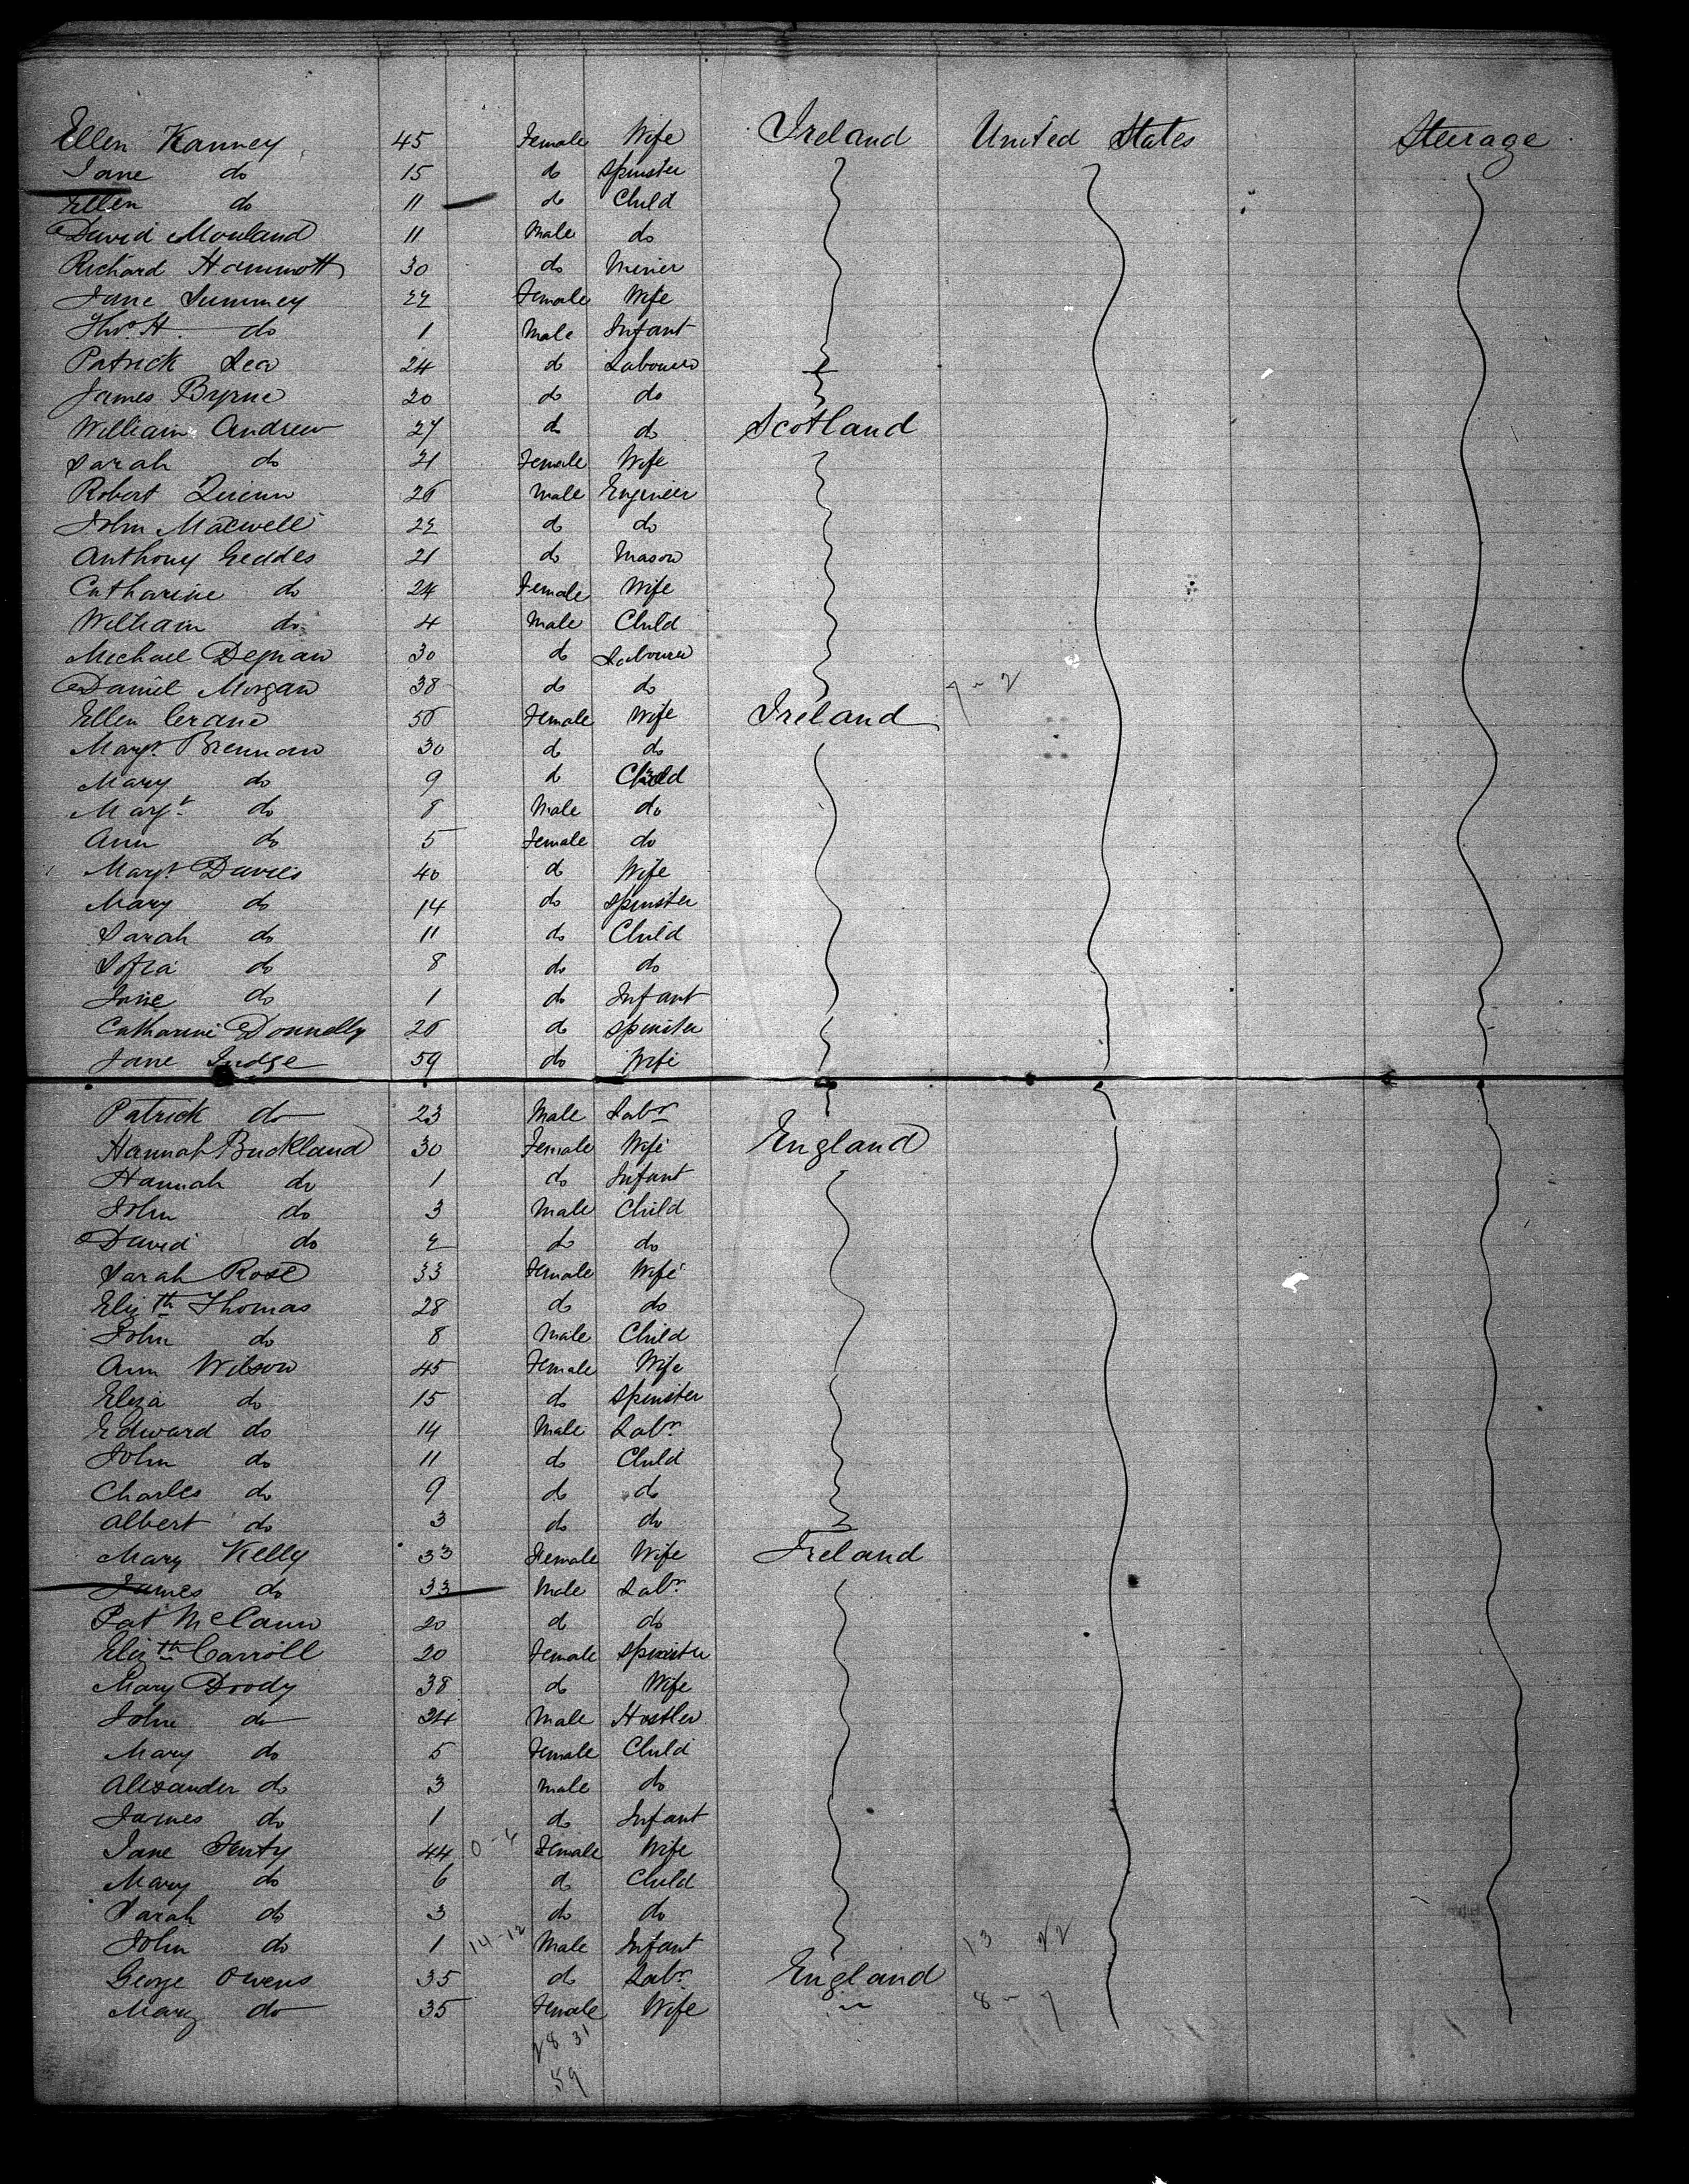 Ellen Kanney 45 Female Wife Ireland United States Steerage
Jane do 15 do Spinster
Ellen do 11 do Child
David Morland 11 Male do
Richard Hammott 30 do Minier
Jane Summey 22 Female Wife
Thos. H. do 1 Male Infant
Patrick Lea 24 do Labourer
James Byrne 20 do do
William Andrew 27 do do Scotland
Sarah do 21 Female Wife
Robert Quinn 26 Male Engineer
John Maxwell 22 do do
Anthony Geddes 21 do Mason
Catharine do 24 Female Wife
William do 4 Male Child
Michael Degnan 30 do Labourer
Daniel Morgan 38 do do 7 - 2
Ellen Crane 50 Female Wife Ireland
Margt. Brennan 30 do do
Mary do 9 do Child
Margt. do 8 Male do
Ann do 5 Female do
Margt. Davies 40 do Wife
Mary do 14 do Spinster
Sarah do 11 do Child
Sofia do 8 do do
Jane do 1 do Infant
Catharine Donnelly 26 do Spinster
Jane Judge 59 do Wife
Patrick do 23 Male Labr
Hannah Buckland 30 Female Wife England
Hannah do 1 do Infant
John do 3 Male Child
David do 2 do do
Sarah Rose 33 Female Wife
Elizth Thomas 28 do do
John do 8 Male Child
Ann Wilson 45 Female Wife
Eliza do 15 do Spinster
Edward do 14 Male Labr.
John do 11 do Child
Charles do 9 do do
Albert do 3 do do
Mary Kelly 33 Female Wife Ireland
James do 33 Male Labr.
Pat McCann 20 do do
Elizth Carroll 20 Female Spinster
Mary Doody 38 do Wife
John do 34 Male Hostler
Mary do 5 Female Child
Alexander do 3 Male do
James do 1 do Infant
Jane Fenty 44 0-6 Female Wife
Mary do 6 do Child
Sarah do 3 do do
John do 1 14-12 Male Infant 13 22
George Owens 35 do Labr. England
Mary do 35 Female Wife " 8 - 7
28 31
59